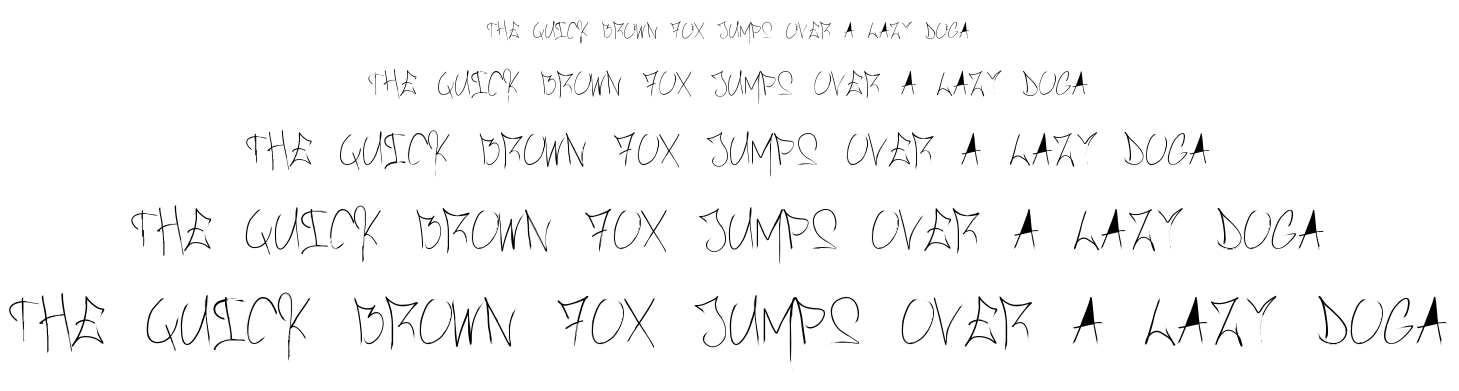 THE QUICK BROWN FOX JUMPS OVER A LAZY DOGA
THE QUICK BROWN FOX JUMPS OVER A LAZY DOGA
THE QUICK BROWN FOX JUMPS OVER A LAZY DOGA
THE QUICK BROWN FOX JUMPS OVER A LAZY DOGA
THE QUICK BROWN FOX JUMPS OVER A LAZY DOGA